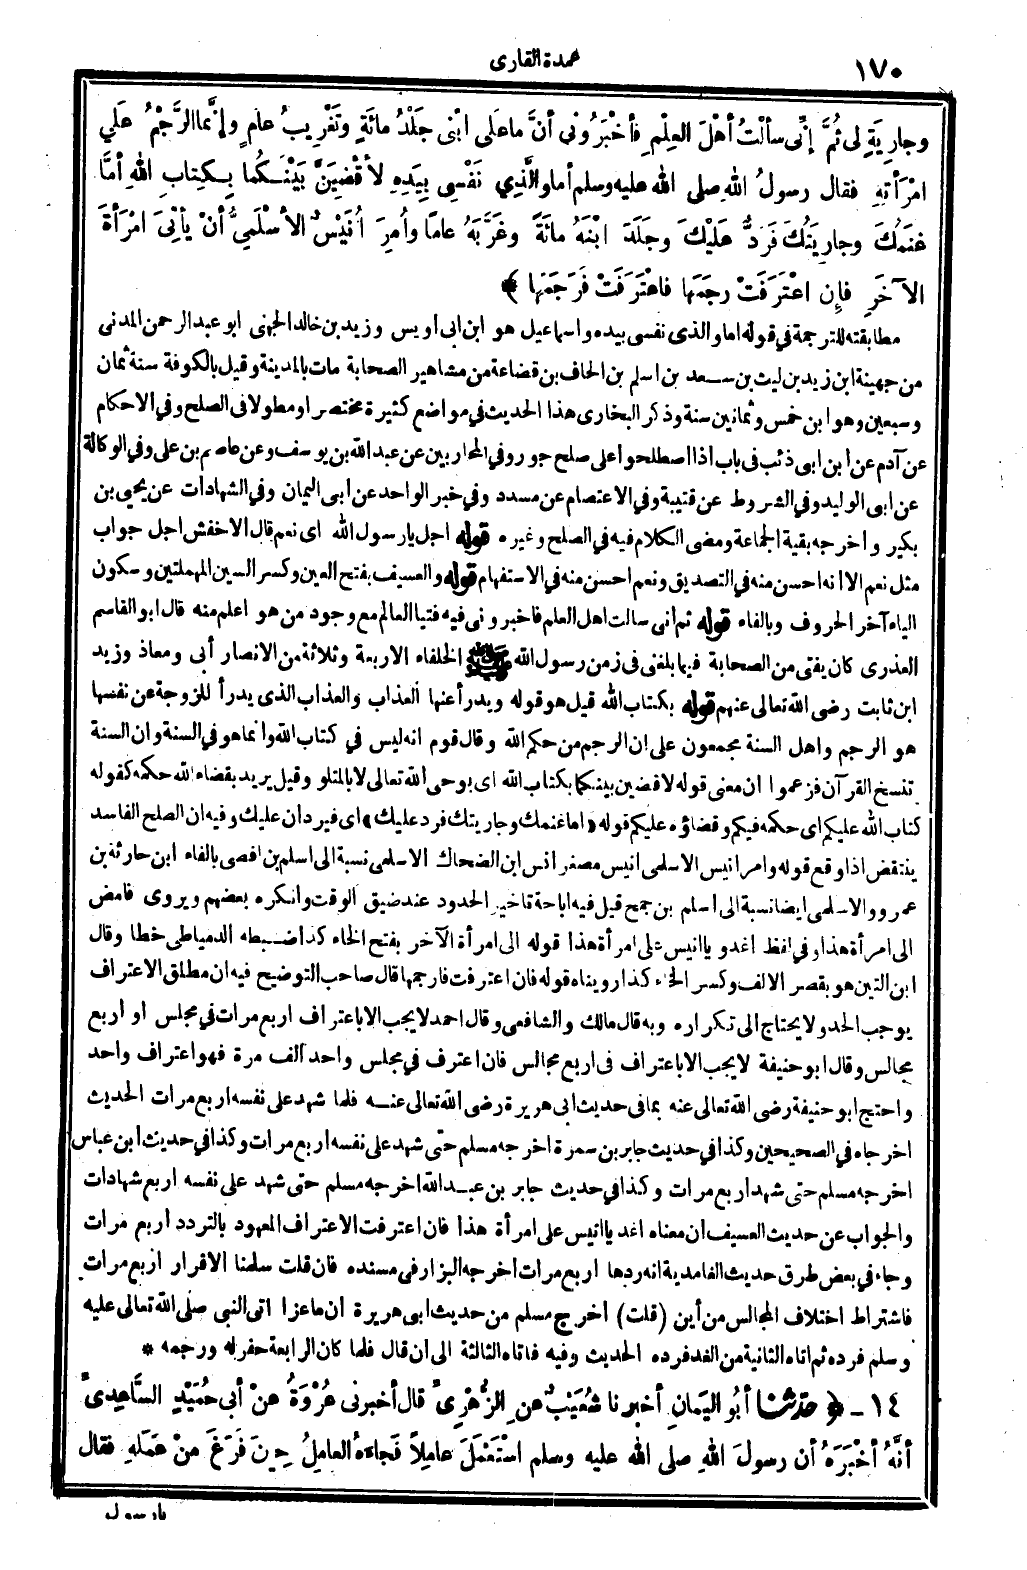 عمدة القارى
١٧٠
وجارِيَةٍ لِى ثُمَّ إنِّى سألْتُ أهْلَ العِلْمِ فأخْبَرُونى أنَّ ما علَى ابْنى جَلْدُ مائَةٍ وتَغْرِيبُ عامٍ وإنَّما الرَّجْمُ علَي
امْرَأتِهِ فقال رسولُ اللهِ صلى الله عليه وسلم أما والَّذِي نَفْسِى بِيَدِهِ لأقْضِيَنَّ بَيْنَكُما بِكِتابِ اللهِ أمَّا
غَنَمُكَ وجارِيَتُكَ فَرَدٌّ عَلَيْكَ وجَلَدَ ابْنَهُ مائَةً وغَرَّبَهُ عاماً وأُمِرَ أُنَيْسٌ الأسْلَمِيُّ أنْ يأتِىَ امْرَأةَ
الآخَرِ فإنِ اعْتَرَفَتْ رجَمَها فاعْتَرَفَتْ فَرَجَمَها ﴾
مطابقته للترجمة في قوله اما والذى نفسى بيده واسماعيل هو ابن ابى اويس وزيد بن خالد الجهنى ابو عبد الرحمن المدنى
من جهينة ابن زيد بن ليث بن سعد بن اسلم بن الحاف بن قضاعة من مشاهير الصحابة مات بالمدينة وقيل بالكوفة سنة ثمان
وسبعين وهو ابن خمس وثمانين سنة وذكر البخارى هذا الحديث في مواضع كثيرة مختصرا ومطولا فى الصلح وفي الاحكام
عن آدم عن ابن ابى ذئب فى باب اذا اصطلحوا على صلح جور وفي المحاربين عن عبد الله بن يوسف وعن عاصم بن على وفي الوكالة
عن ابى الوليد وفي الشروط عن قتيبة وفي الاعتصام عن مسدد وفي خبر الواحد عن ابى اليمان وفي الشهادات عن يحيى بن
بكير واخرجه بقية الجماعة ومضى الكلام فيه في الصلح وغيره قوله اجل يا رسول الله اى نعم قال الاخفش اجل جواب
مثل نعم الا انه احسن منه في التصديق ونعم احسن منه في الاستفهام قوله والعسيف بفتح العين وكسر السين المهملتين وسكون
الياء آخر الحروف وبالفاء قوله ثم انى سالت اهل العلم فاخبرونى فيه فتيا العالم مع وجود من هو اعلم منه قال ابو القاسم
العذرى كان يفتى من الصحابة فيما بلغنى فى زمن رسول الله ﷺ الخلفاء الاربعة وثلاثة من الانصار أبى ومعاذ وزيد
ابن ثابت رضى الله تعالى عنهم قوله بكتاب الله قيل هو قوله ويدرأ عنها العذاب والعذاب الذى يدرأ للزوجة عن نفسها
هو الرجم واهل السنة مجمعون على ان الرجم من حكم الله وقال قوم انه ليس في كتاب الله وانما هو في السنة وان السنة
تنسخ القرآن فزعموا ان معنى قوله لاقضين بينكما بكتاب الله اى بوحى الله تعالى لا بالمتلو وقيل يريد بقضاء الله حكمه كقوله
كتاب الله عليكم اى حكمه فيكم وقضاؤه عليكم قوله «اما غنمك وجاريتك فرد عليك» اى فيردان عليك وفيه ان الصلح الفاسد
ينتقض اذا وقع قوله وامر انيس الاسلمى انيس مصغر انس ابن الضحاك الاسلمى نسبة الى اسلم بن افصى بالفاء ابن حارثة بن
عمرو والاسلمى ايضا نسبة الى اسلم بن جمح قيل فيه اباحة تاخير الحدود عند ضيق الوقت وانكره بعضهم ويروى فامض
الى امرأة هذا وفي لفظ اغدو يا انيس على امرأة هذا قوله الى امرأة الآخر بفتح الخاء كذا ضبطه الدمياطى خطا وقال
ابن التين هو بقصر الالف وكسر الخاء كذا رويناه قوله فان اعترفت فارجمها قال صاحب التوضيح فيه ان مطلق الاعتراف
يوجب الحد ولا يحتاج الى تكراره وبه قال مالك والشافعى وقال احمد لا يجب الا باعتراف اربع مرات في مجلس او اربع
مجالس وقال ابو حنيفة لا يجب الا باعتراف فى اربع مجالس فان اعترف في مجلس واحد الف مرة فهو اعتراف واحد
واحتج ابو حنيفة رضى الله تعالى عنه بما فى حديث ابى هريرة رضى الله تعالى عنه فلما شهد على نفسه اربع مرات الحديث
اخرجاه في الصحيحين وكذا في حديث جابر بن سمرة اخرجه مسلم حتى شهد على نفسه اربع مرات وكذا في حديث ابن عباس
اخرجه مسلم حتى شهد اربع مرات وكذا في حديث جابر بن عبد الله اخرجه مسلم حتى شهد على نفسه اربع شهادات
والجواب عن حديث العسيف ان معناه اغد يا انيس على امرأة هذا فان اعترفت الاعتراف المعهود بالتردد اربع مرات
وجاء في بعض طرق حديث الغامدية انه ردها اربع مرات اخرجه البزار فى مسنده فان قلت سلمنا الاقرار اربع مرات
فاشتراط اختلاف المجالس من أين (قلت) أخرج مسلم من حديث ابى هريرة ان ماعزا اتى النبى صلى الله تعالى عليه
وسلم فرده ثم اتاه الثانية من الغد فرده الحديث وفيه فاتاه الثالثة الى ان قال فلما كان الرابعة حفر له ورجمه *
١٤ - ﴿ حدثنا أبُو اليَمانِ أخبرنا شُعَيْبٌ عنِ الزُّهْرِىِّ قال أخبرنى عُرْوَةُ عنْ أبى حُمَيْدٍ السَّاعِدِىِّ
أنَّهُ أخْبَرَهُ أن رسولَ اللهِ صلى الله عليه وسلم اسْتَعْمَلَ عامِلاً فَجاءَهُ العامِلُ حِينَ فَرَغَ مِنْ عَمَلِهِ فقال
يا رسول